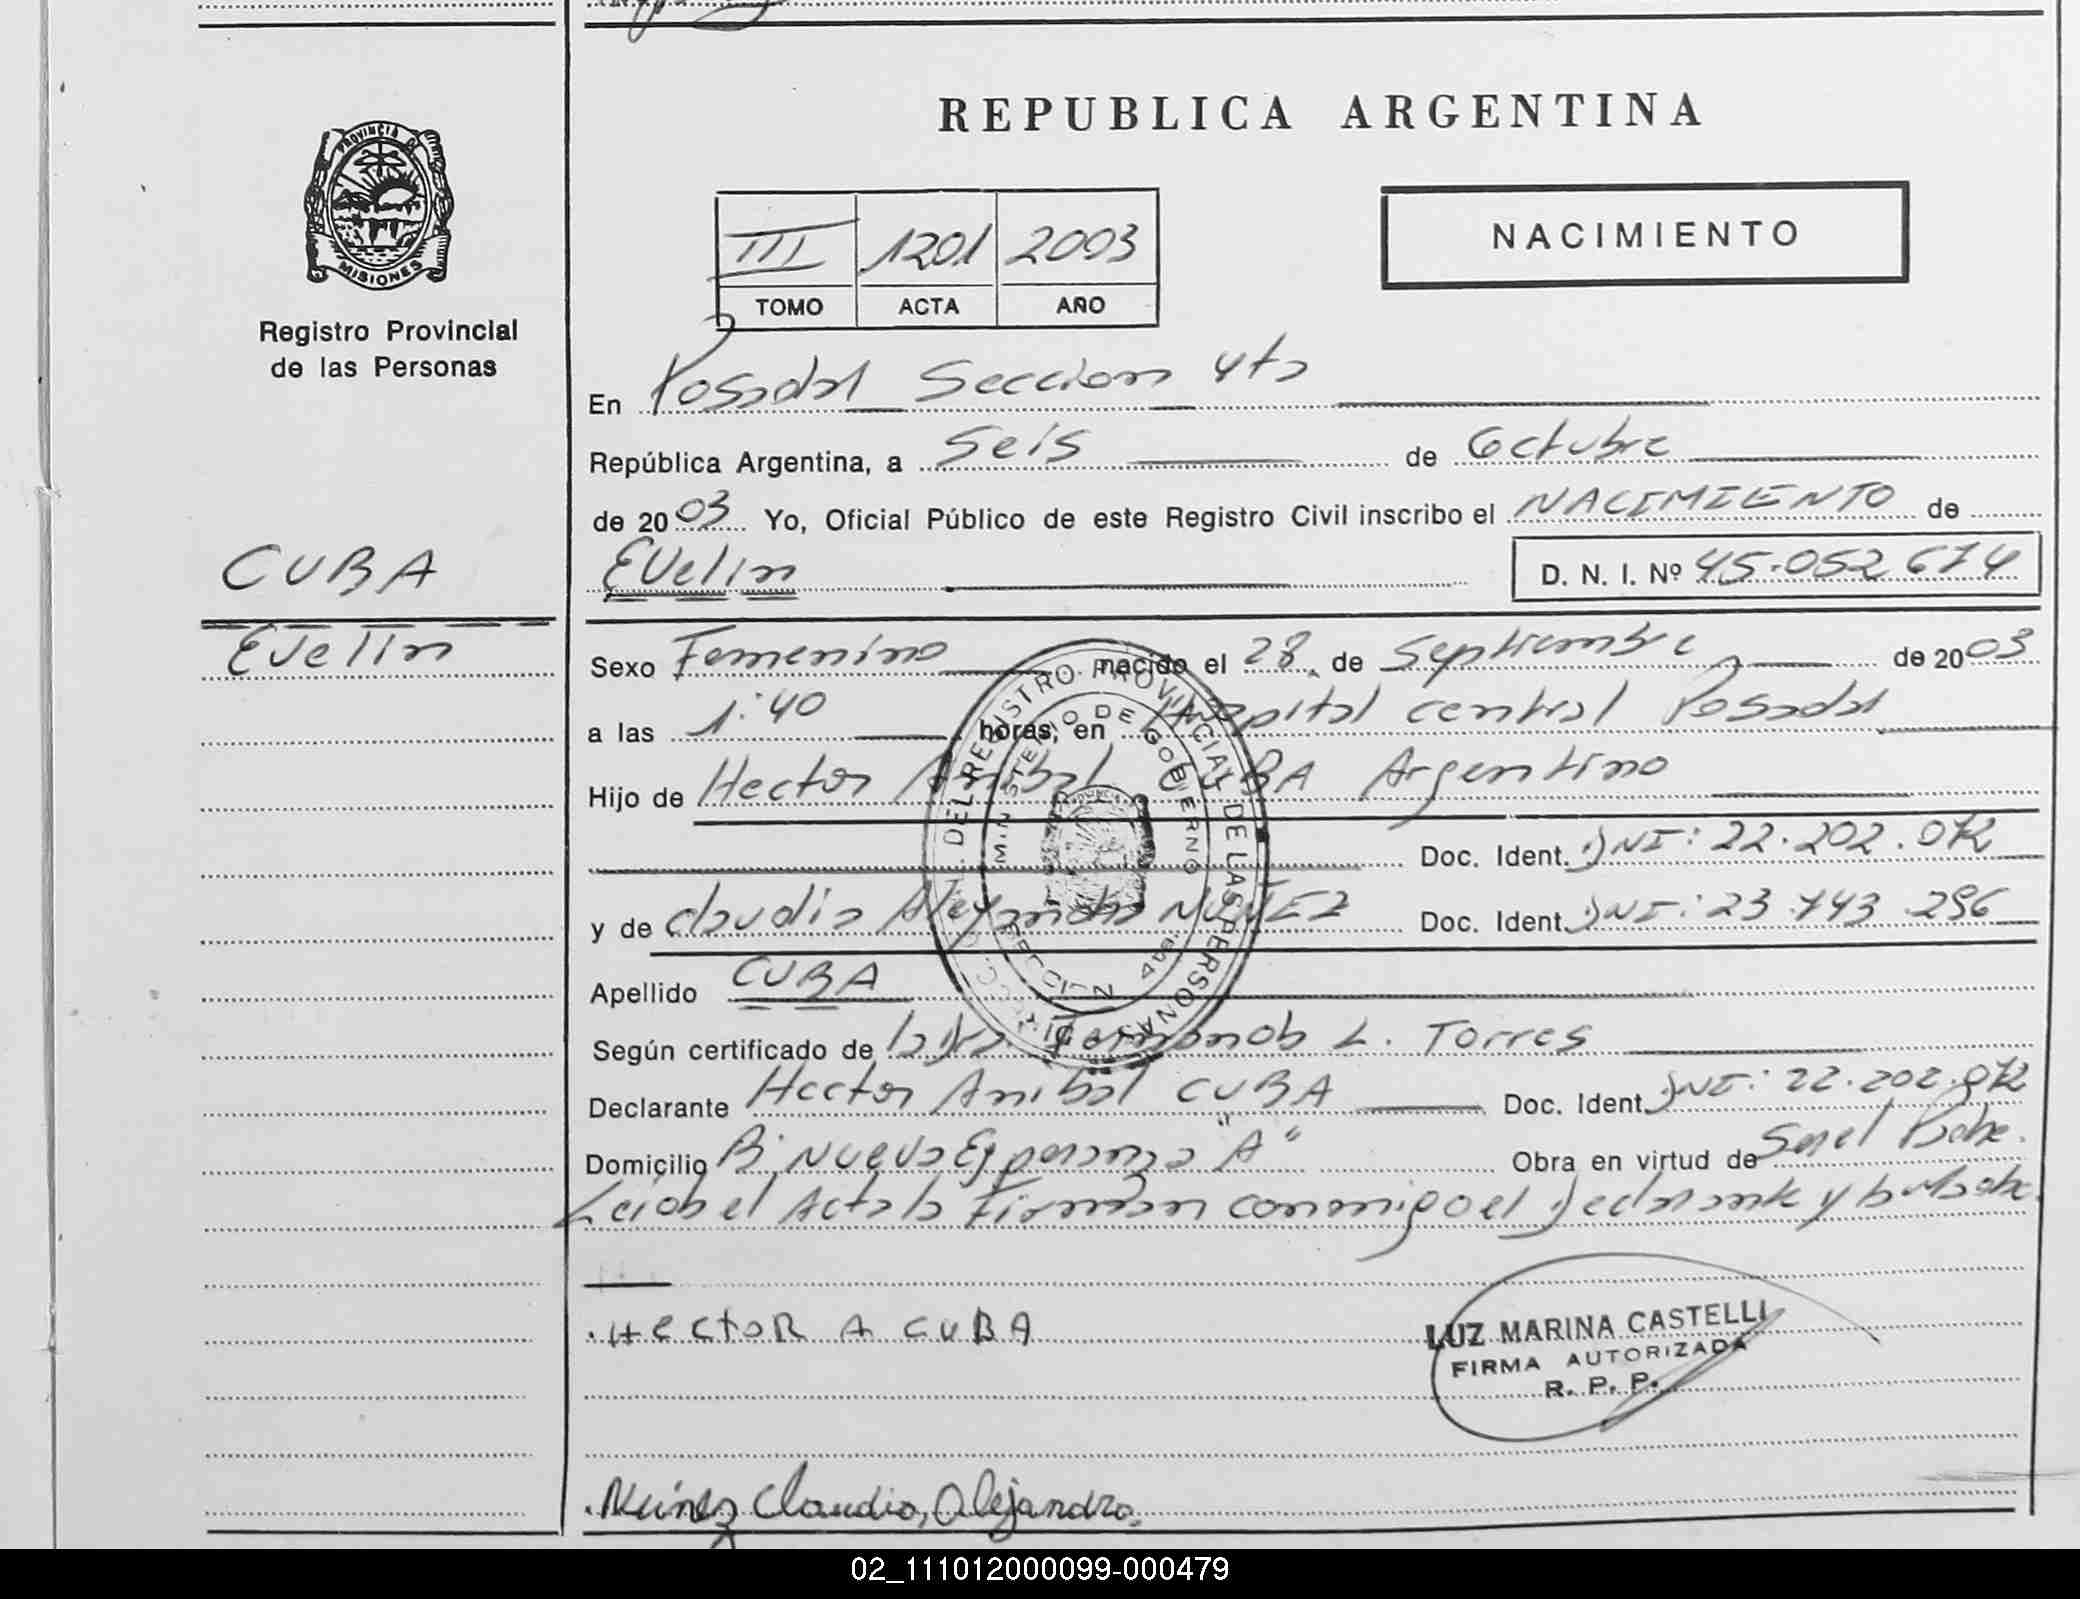 REPUBLICA ARGENTINA
PROVINCIA DE
MISIONES
Registro Provincial
de las Personas
III 1201 2003
TOMO ACTA AÑO
NACIMIENTO
En Posadas Seccion 4ta
República Argentina, a Seis de Octubre
de 2003 Yo, Oficial Público de este Registro Civil inscribo el NACIMIENTO de
CUBA
Evelin D. N. I. Nº 45.052 674
Evelin
Sexo Femenino nacido el 28 de Septiembre de 2003
a las 1:40 horas, en Hospital central Posadas
Hijo de Hector Anibal CUBA Argentino
Doc. Ident. DNI: 22.202.072
y de Claudia Alejandra NUÑEZ Doc. Ident. DNI: 23.743.296
Apellido CUBA
Según certificado de la Dra. L. Torres
Declarante Hector Anibal CUBA Doc. Ident. DNI: 22.202.072
Domicilio B. Nueva Esperanza "A" Obra en virtud de Ser el Padre.
Leida el Acta la Firman conmigo el Declarante y la Madre.
HECTOR A CUBA
LUZ MARINA CASTELLI
FIRMA AUTORIZADA
R. P. P.
Núnez Claudia, Alejandra.
DEL REGISTRO PROVINCIAL DE LAS PERSONAS
MINISTERIO DE GOBIERNO
02_111012000099-000479